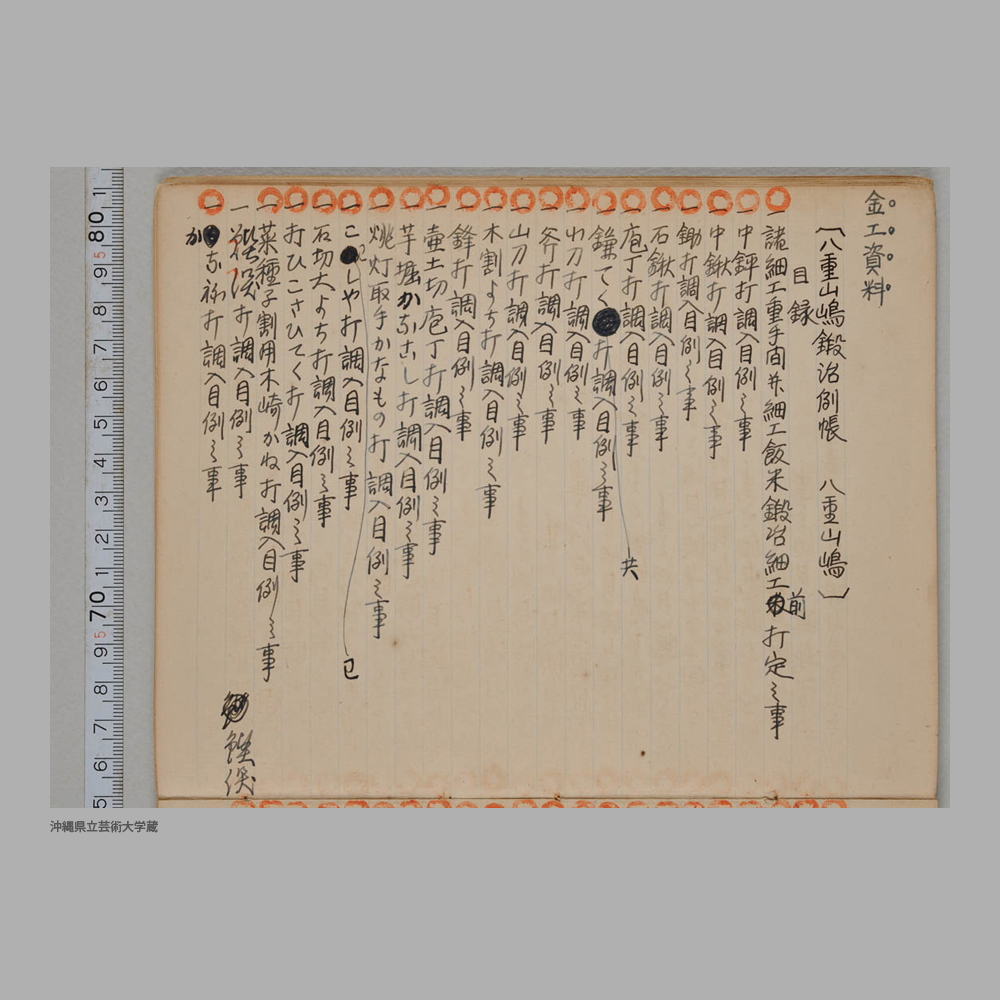 金工資料
〔八重山嶋鍛冶例帳　八重山嶋〕
目録
一諸細工重手間并細工飯米鍛冶細工前打定之事
一中鉀打調入目例之事
一中鍬打調入目例之事
一鋤打調入目例之事
一石鍬打調入目例之事
一庖丁打調入目例之事
一鐘てく打調入目例之事
共
一小刀打調入目例之事
一斧打調入目例之事
一山刀打調入目例之事
一木割よち打調入目例之事
一鋒打調入目例之事
一壷土切庖丁打調入目例之事
一芋堀かなこし打調入目例之事
一挑灯取手かなもの打調入目例之事
一こしや打調入目例之事
已
一石切大よち打調入目例之事
一打ひこさひてく打調入目例之事
一菜種子割用木崎かね打調入目例之事
一打調入目例之事
打調入目例之事
沖縄県立芸術大学蔵